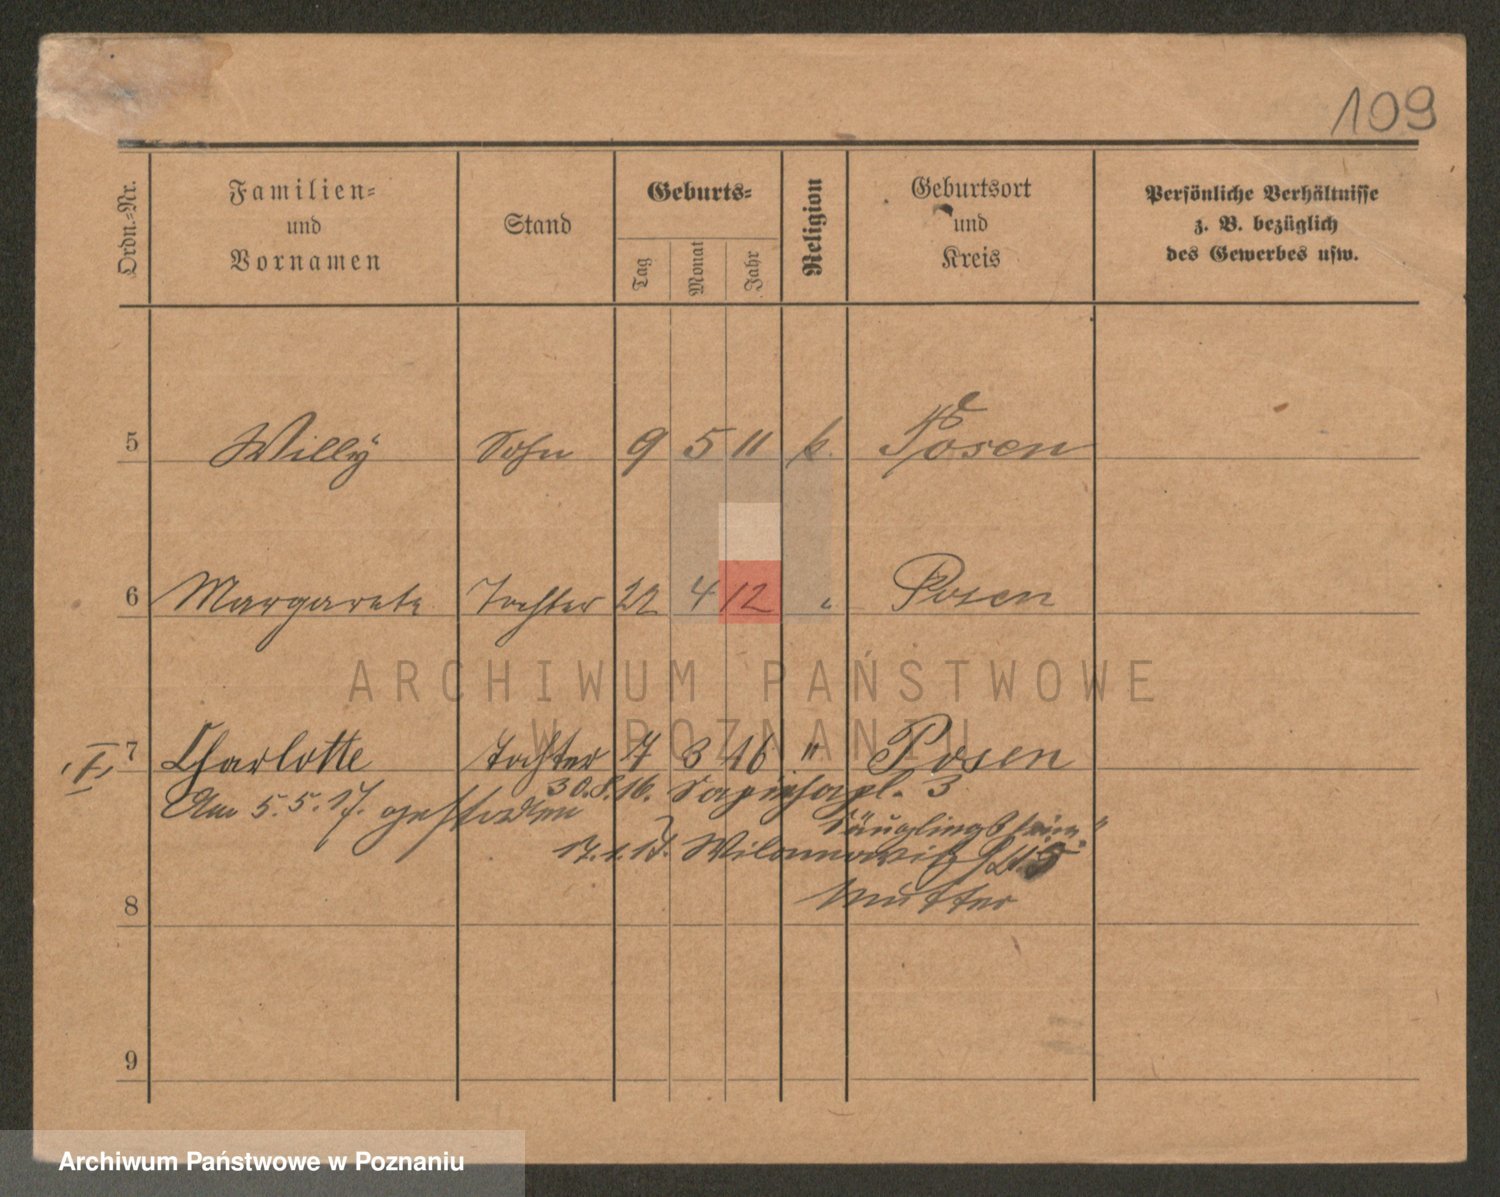 109
Ordn.-Nr.
Familien-
und
Vornamen
Stand
Geburts-
Tag
Monat
Jahr
Religion
Geburtsort
und
Kreis
Persönliche Verhältnisse
z. B. bezüglich
des Gewerbes usw.
5 Willy Sohn 9 5 11 k. Posen
6 Margarete Tochter 22 4 12 " Posen
ARCHIWUM PAŃSTWOWE
W POZNANIU
I 7 Charlotte Tochter 7 3 16 " Posen
30.8.16. Sapiehapl. 3
Am 5.5.17. gestorben
Säuglingsheim
17.1.17. Wilamowitz
Mutter
8
9
Archiwum Państwowe w Poznaniu